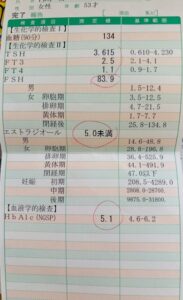 女性 53才
完了 報告
検査項目 測定値 基準範囲
【生化学的検査Ⅰ】
血糖(90分) 134
【生化学的検査Ⅱ】
TSH 3.615 0.610-4.230
FT3 2.5 2.1-4.1
FT4 1.1 0.9-1.7
FSH 83.9
男 1.5-12.4
女 卵胞期 3.5-12.5
排卵期 4.7-21.5
黄体期 1.7-7.7
閉経後 25.8-134.8
エストラジオール 5.0未満
男 14.6-48.8
女 卵胞期 28.8-196.8
排卵期 36.4-525.9
黄体期 44.1-491.9
閉経期 47.0以下
妊娠 初期 208.5-4289.0
中期 2808.0-28700.
後期 9875.0-31800.
【血液学的検査】
HbA1c(NGSP) 5.1 4.6-6.2